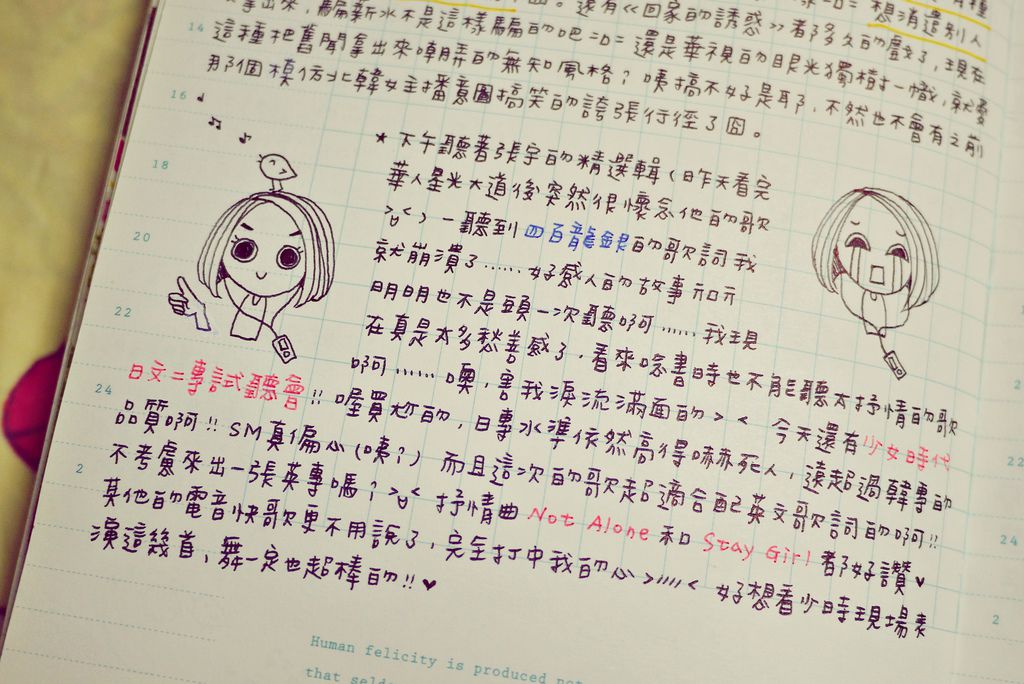 想消遣別人
拿出來，騙薪水不是這樣騙的吧=口= 還是華視的眼光獨樹一幟，就愛
這種把舊聞拿出來嘲弄的無知風格？咦搞不好是耶，不然也不會有之前
那個模仿北韓女主播意圖搞笑的誇張行徑了囧。
★ 下午聽著張宇的精選輯（昨天看完
華人星光大道後突然很懷念他的歌
>"<）一聽到四百龍銀的歌詞我
就崩潰了……好感人的故事
明明也不是頭一次聽啊……我現
在真是太多愁善感了，看來唸書時也不能聽太抒情的歌
啊……噢，害我淚流滿面的 > < 今天還有少女時代
日文二專試聽會!! 喔買尬的，日專水準依然高得嚇死人，遠超過韓專的
品質啊!! SM真偏心（咦？）而且這次的歌超適合配英文歌詞的啊!!
不考慮來出一張英專嗎？>"< 抒情曲 Not Alone 和 Stay Girl 都好讚♥
其他的電音快歌更不用說了，完全打中我的心 >////< 好想看少時現場表
演這幾首，舞一定也超棒的!! ♥
14
16
18
20
22
24
2
22
24
2
Human felicity is produced not
that seld